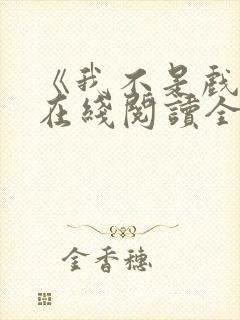 《我不是戲
在綫閱讀全
金香穗